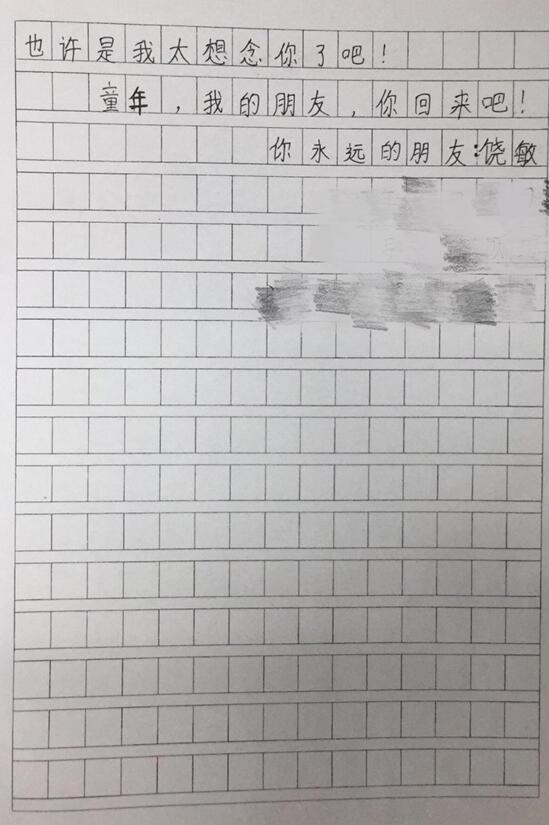 也许是我太想念你了吧！
童年，我的朋友，你回来吧！
你永远的朋友：饶敏